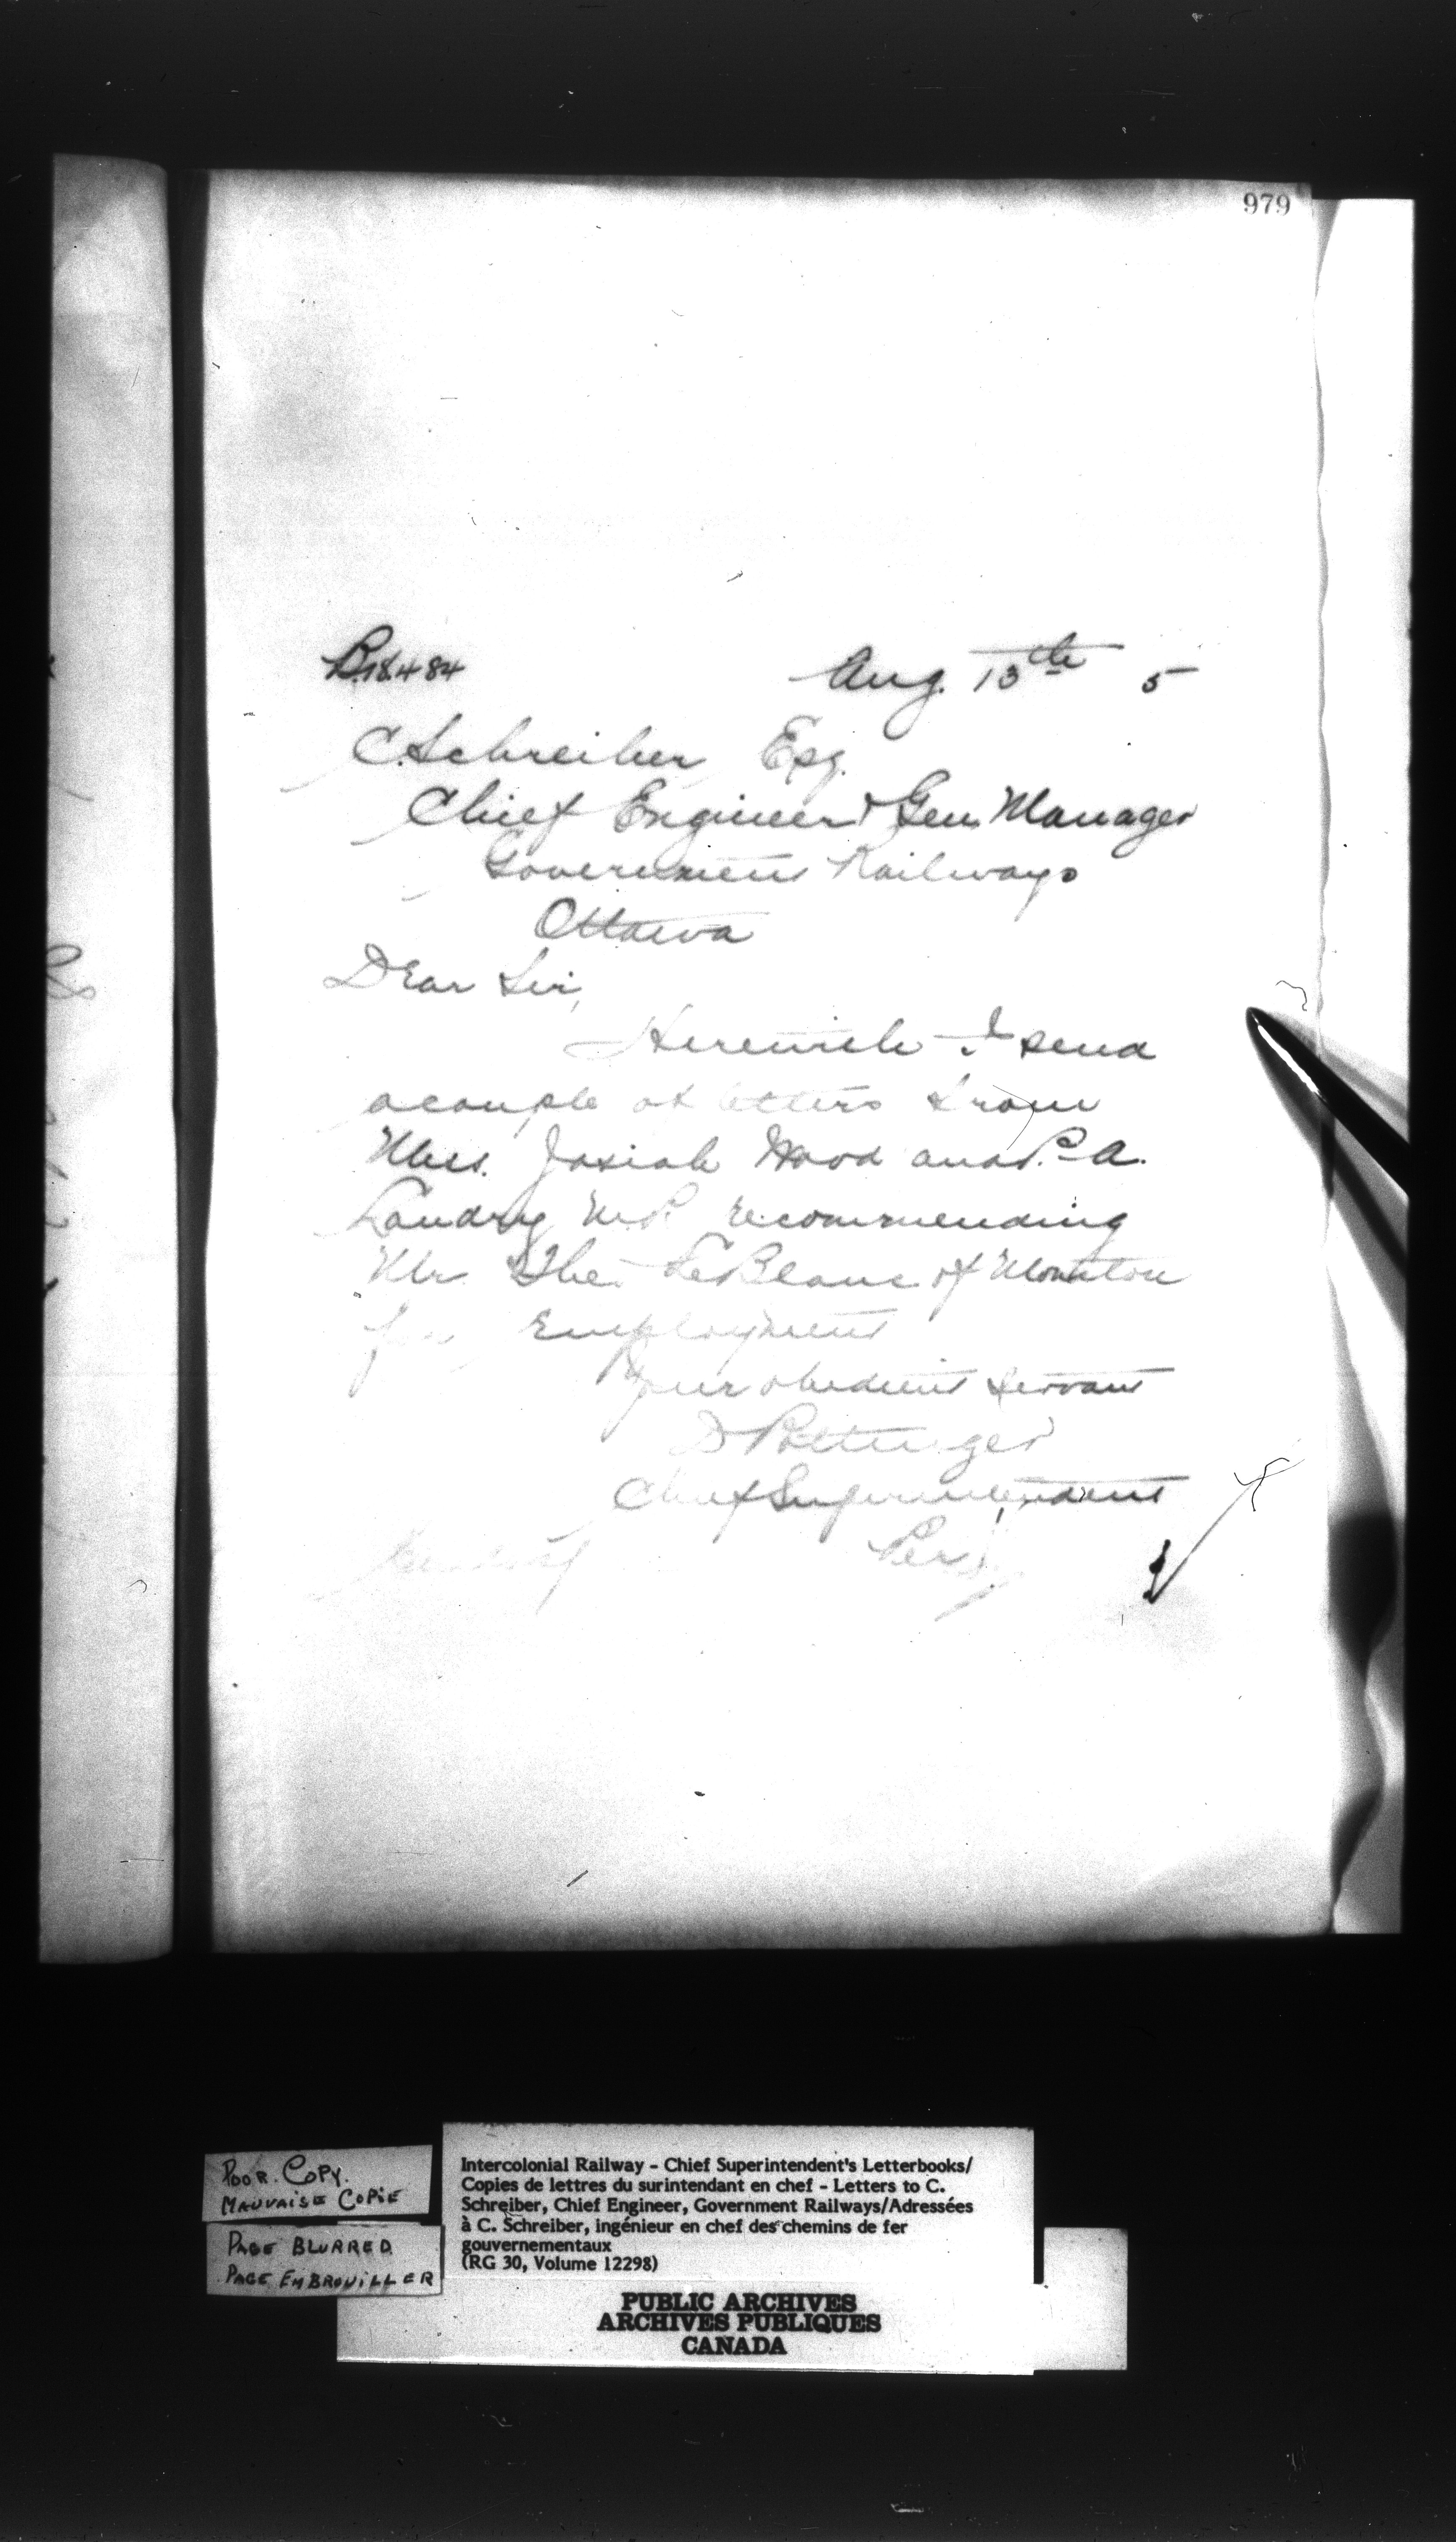 979
B.18484 Aug. 13th 5
C. Schreiber Esq.
Chief Engineer & Gen. Manager
Government Railways
Ottawa
Dear Sir,
Herewith I send
a couple of letters from
Mess. Josiah Wood and P. A.
Landry M.P. recommending
Mr. The. LeBlanc of Moncton
for Employment
Your obedient servant
D Pottinger
Chief Superintendent
Per
POOR COPY.
MAUVAISE COPIE
PAGE BLURRED
PAGE EMBROUILLER
Intercolonial Railway - Chief Superintendent's Letterbooks/
Copies de lettres du surintendant en chef - Letters to C.
Schreiber, Chief Engineer, Government Railways/Adressées
à C. Schreiber, ingénieur en chef des chemins de fer
gouvernementaux
(RG 30, Volume 12298)
PUBLIC ARCHIVES
ARCHIVES PUBLIQUES
CANADA